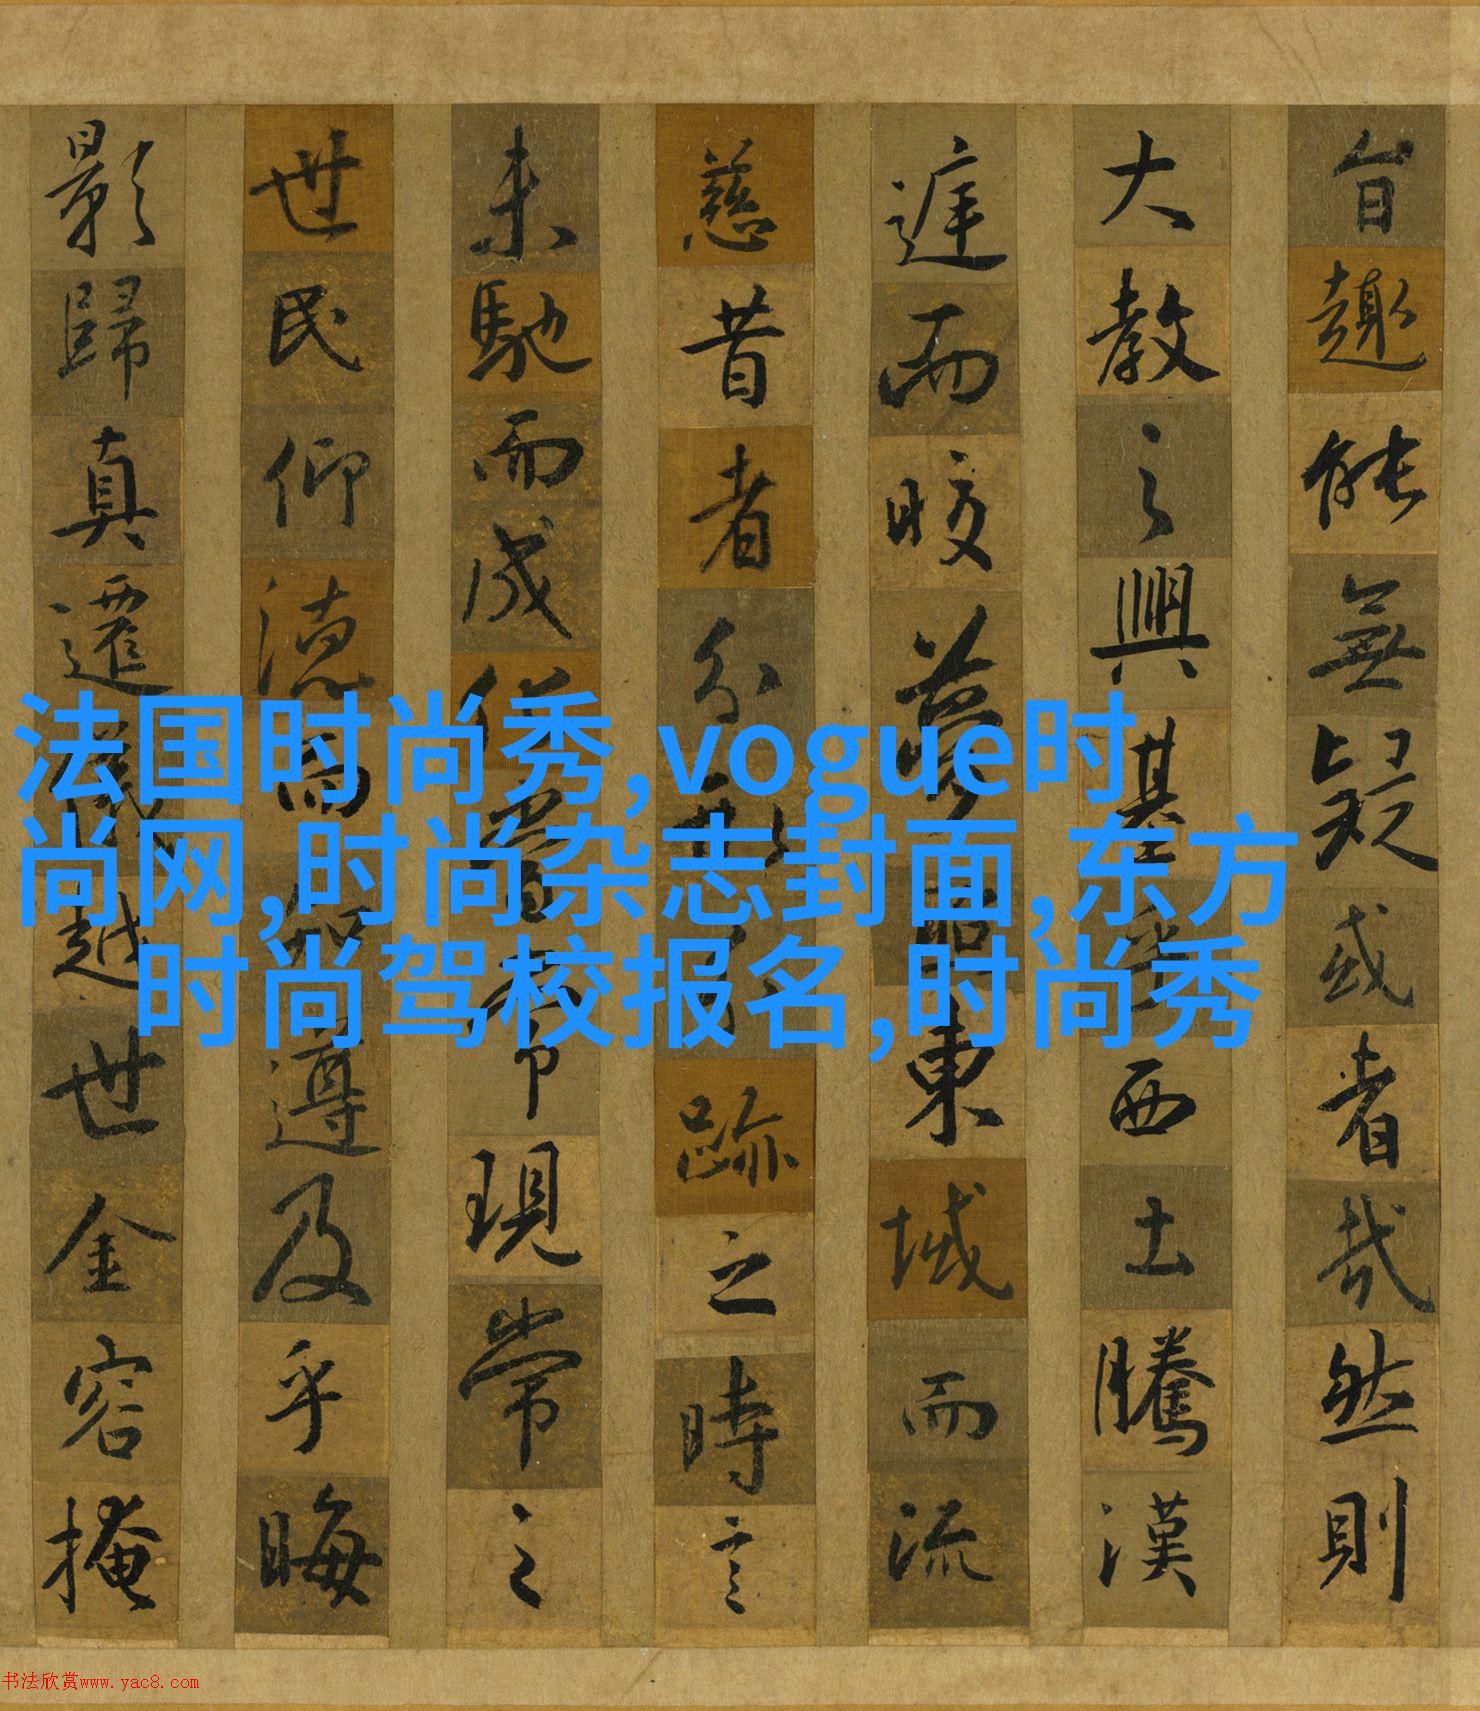 旨趣能無疑或者哉然則
大教之興基乎西土騰漢
庭而皎夢照東域而流
慈昔者分形分跡之時言
未馳而成化當常現常之
世民仰德而知遵及乎晦
影歸真遷儀越世金容掩
法国时尚秀,vogue时
尚网,时尚杂志封面,东方
时尚驾校报名,时尚秀
书法欣赏www.yac8.com